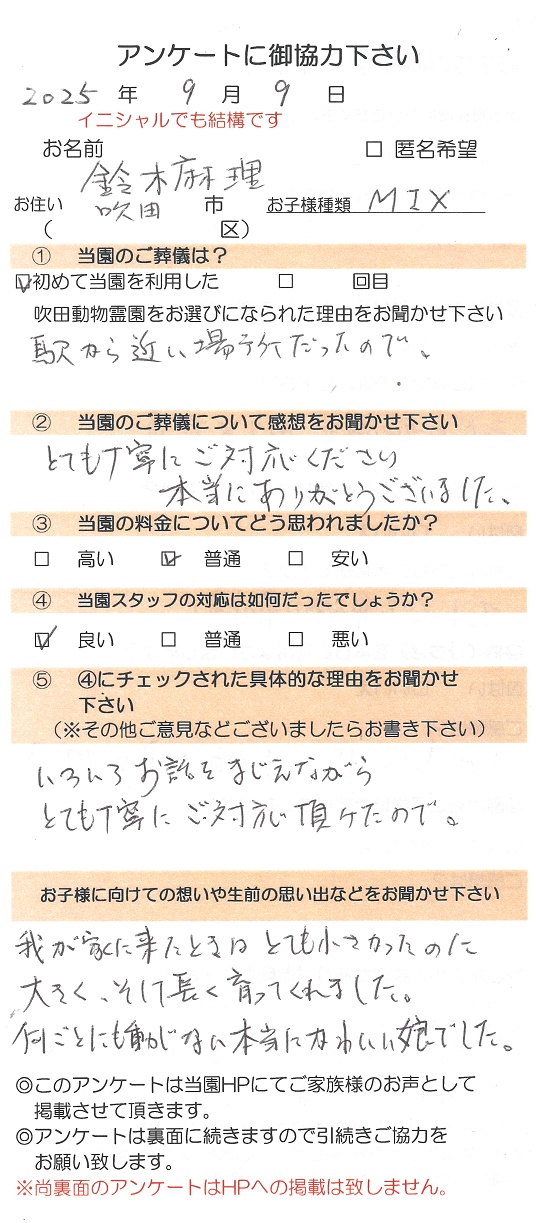 アンケートに御協力下さい
2025 年 9 月 9 日
イニシャルでも結構です
お名前 □ 匿名希望
鈴木麻理
お住い 吹田 市 お子様種類 MIX
( 区)
① 当園のご葬儀は?
☑初めて当園を利用した □ 回目
吹田動物霊園をお選びになられた理由をお聞かせ下さい
駅から近い場所だったので。
② 当園のご葬儀について感想をお聞かせ下さい
とても丁寧にご対応ください
本当にありがとうございました。
③ 当園の料金についてどう思われましたか?
□ 高い ☑ 普通 □ 安い
④ 当園スタッフの対応は如何だったでしょうか?
☑ 良い □ 普通 □ 悪い
⑤ ④にチェックされた具体的な理由をお聞かせ
下さい
(※その他ご意見などございましたらお書き下さい)
いろいろお話をまじえながら
とても丁寧にご対応頂けたので。
お子様に向けての想いや生前の思い出などをお聞かせ下さい
我が家に来たときはとても小さかったのに
大きく、そして長く育ってくれました。
何ごとにも動じない本当にかわいい娘でした。
◎このアンケートは当園HPにてご家族様のお声として
掲載させて頂きます。
◎アンケートは裏面に続きますので引続きご協力を
お願い致します。
※尚裏面のアンケートはHPへの掲載は致しません。